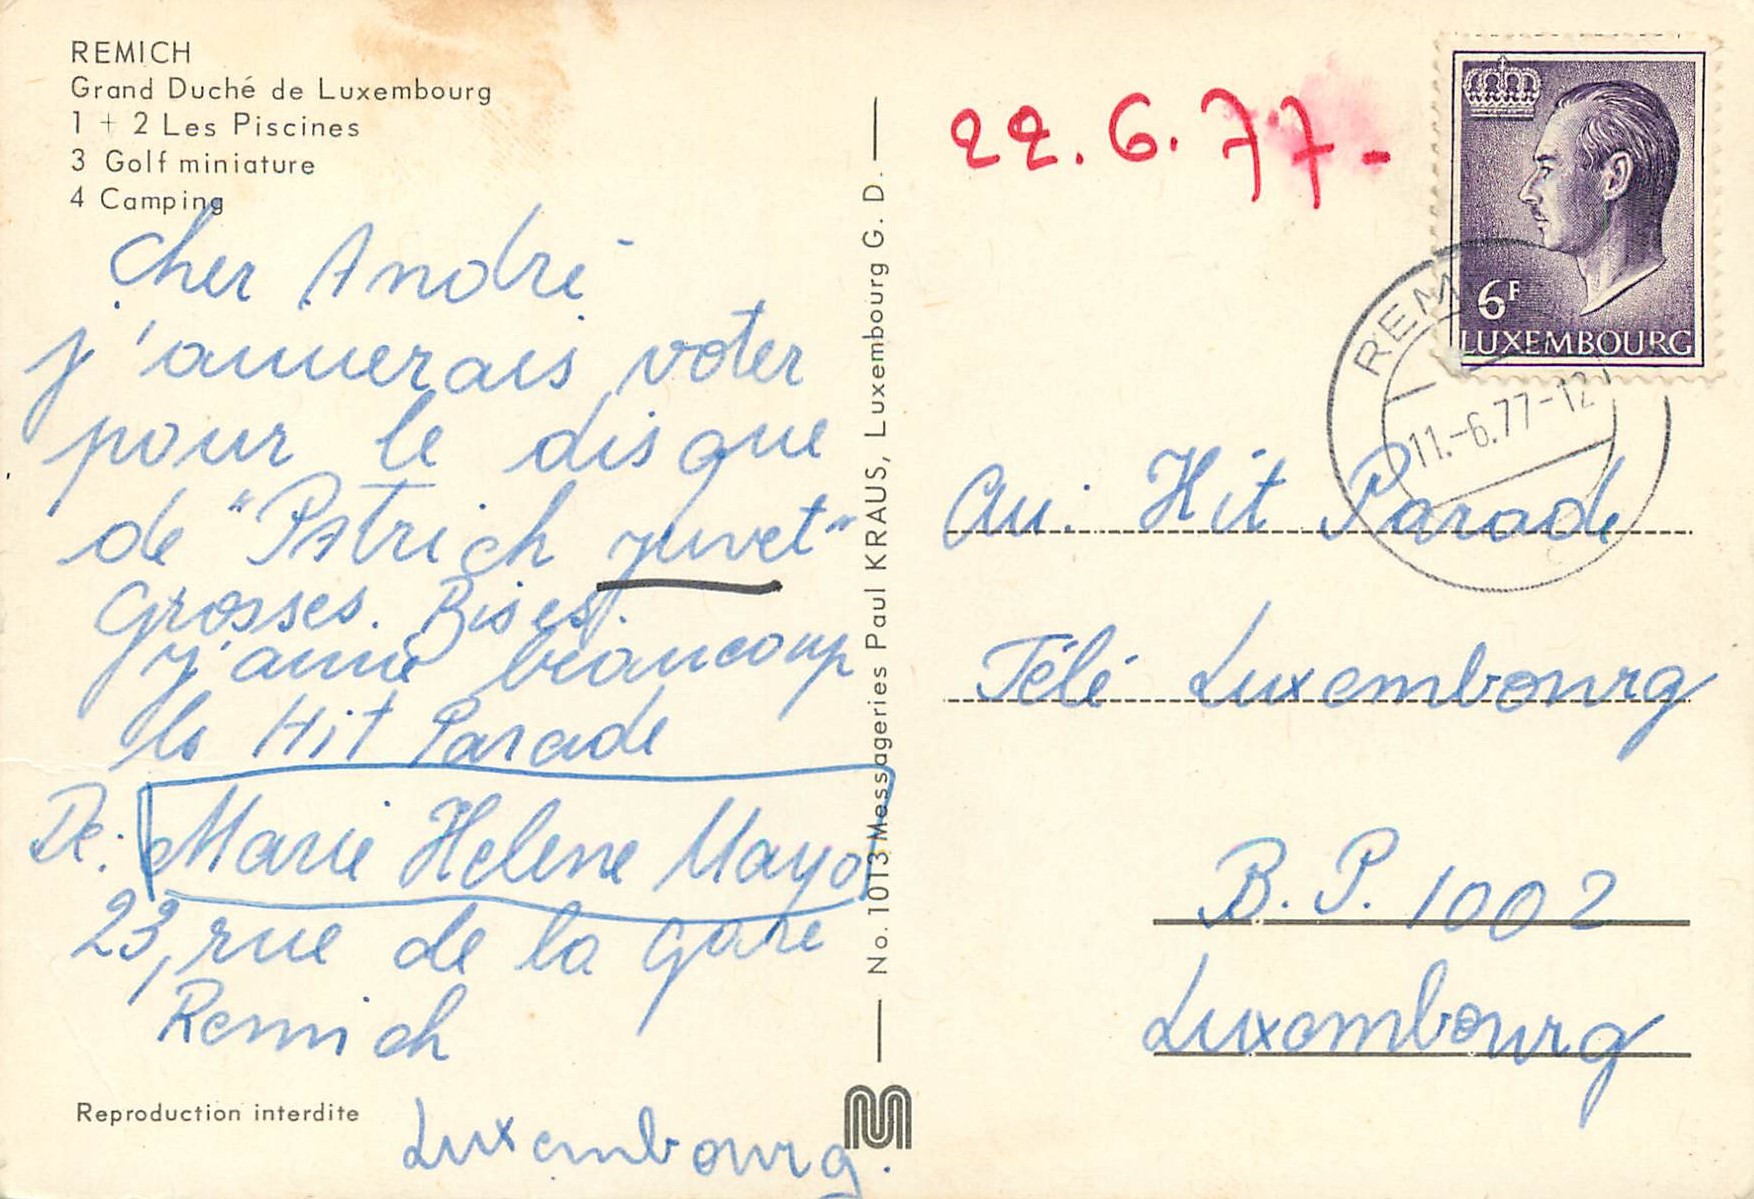 REMICH
Grand Duché de Luxembourg
1 + 2 Les Piscines
3 Golf miniature
4 Camping
Cher André
j'aimerais voter
pour le disque
de "Patrich juvet"
Grosses. Bises.
j'aime beaucoup
le Hit Parade
De: Marie Helene Mayo
23, rue de la gare
Remich
Luxembourg.
Reproduction interdite
No. 1013 Messageries Paul KRAUS, Luxembourg G. D.
22.6.77-
6F
LUXEMBOURG
REM
11.-6.77-12
Au. Hit Parade
Télé Luxembourg
B.P. 1002
Luxembourg